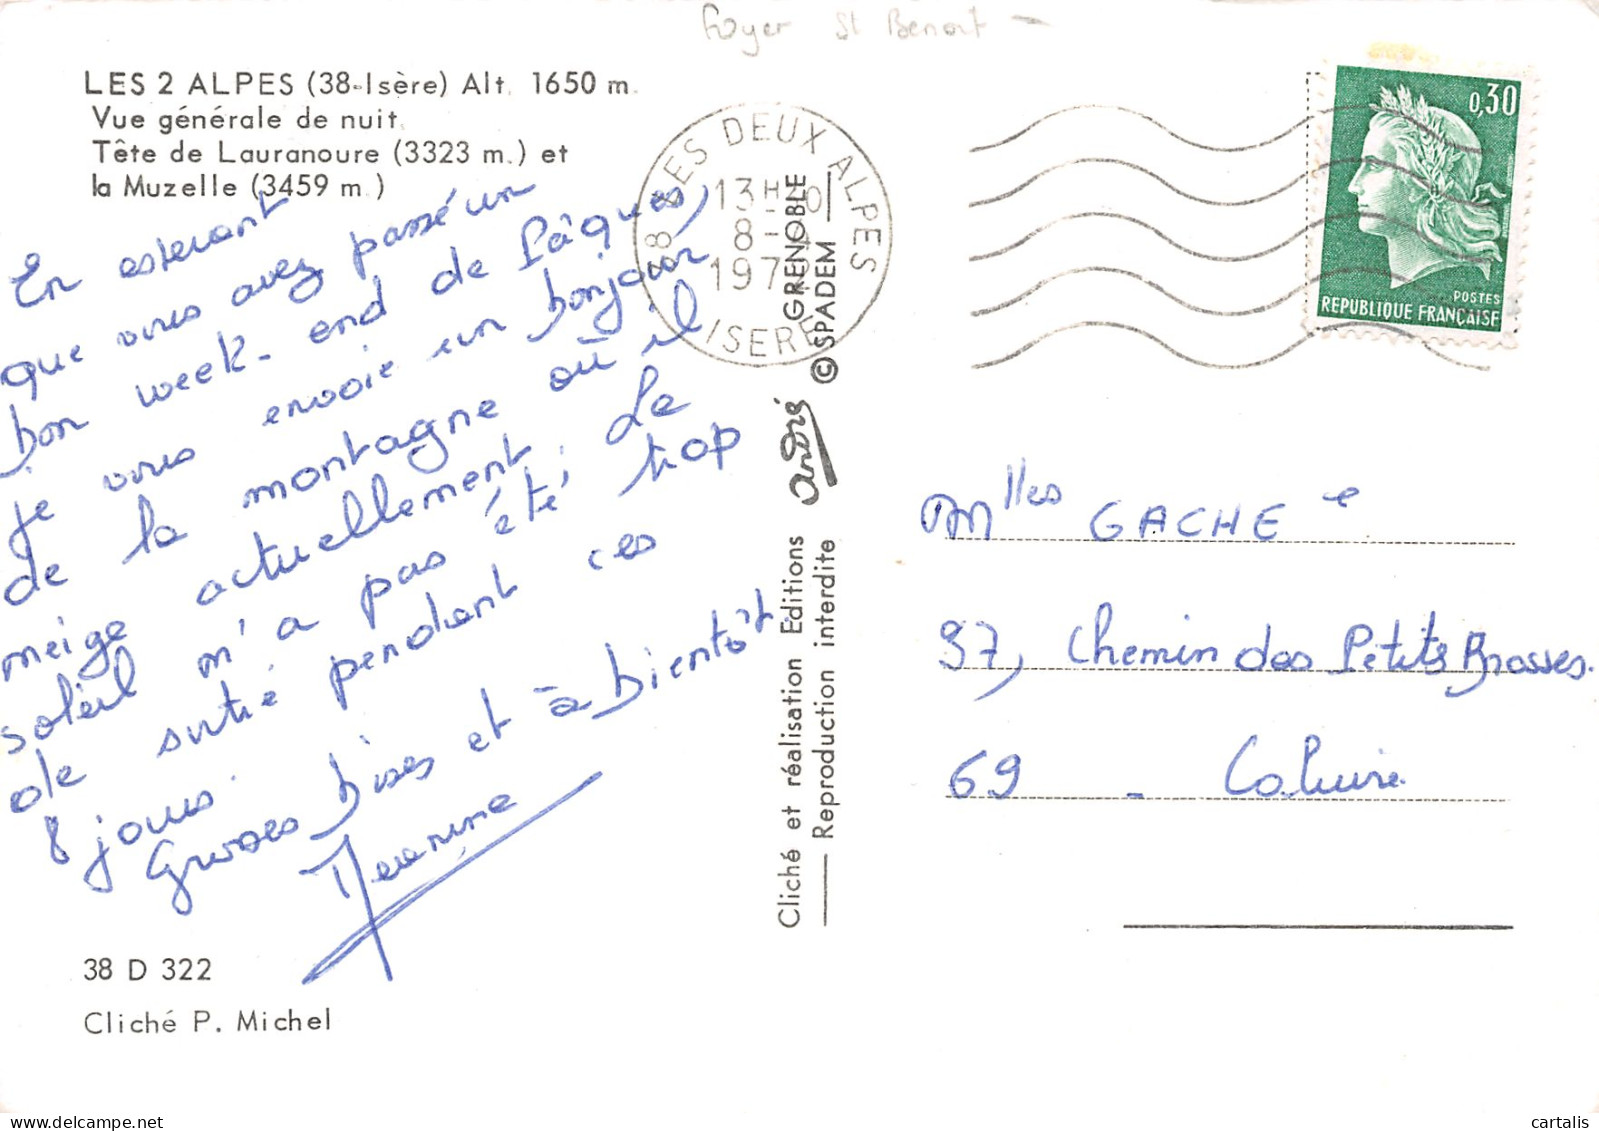 Foyer St Benoit -
LES 2 ALPES (38-Isère) Alt. 1650 m.
Vue générale de nuit.
Tête de Lauranoure (3323 m.) et
la Muzelle (3459 m.)
En esterant
que vous avez passé un
bon week-end de Pâques,
je vous envoie un bonjour
de la montagne où il
neige actuellement. Le
soleil m'a pas été trop
de sortie pendant ces
8 jours.
Grosses bises et à bientôt
Jeannine
38 D 322
Cliché P. Michel
38 LES DEUX ALPES
13H
8-
197
ISERE
GRENOBLE
© SPADEM
André
Cliché et réalisation Editions
Reproduction interdite
0,30
POSTES
REPUBLIQUE FRANÇAISE
Mlles GACHE
97, Chemin des Petits Brosses.
69 - Caluire
cartalis